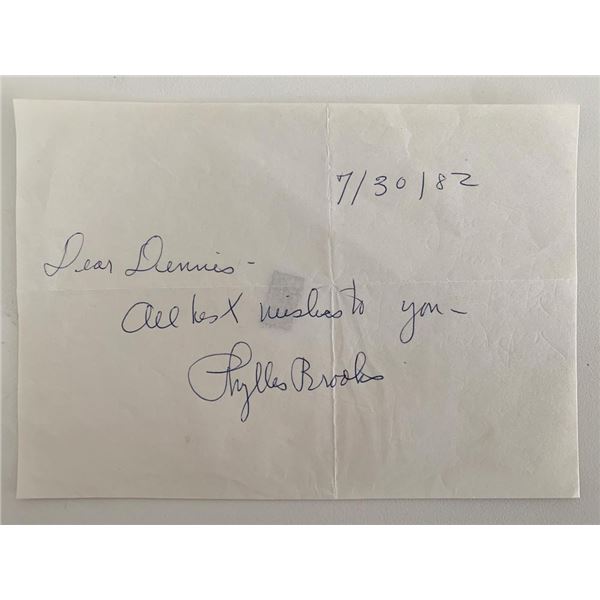 7/30/82
Dear Dennis -
All best wishes to you -
Phyllis Brooks